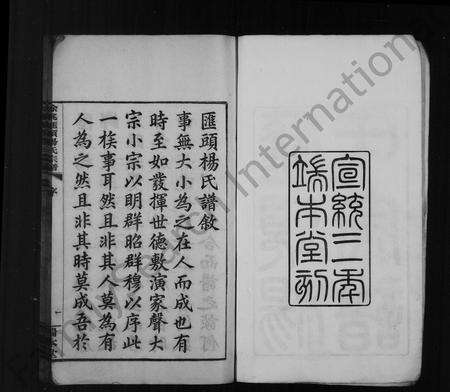 宣統二年
端本堂刻
匯頭楊氏譜敘
事無大小為之在人而成也有
時至如發揮世德敷演家聲大
宗小宗以明群昭群穆以序此
一族事耳然且非其人莫為有
人為之然且非其時莫成吾於
FamilySearch International